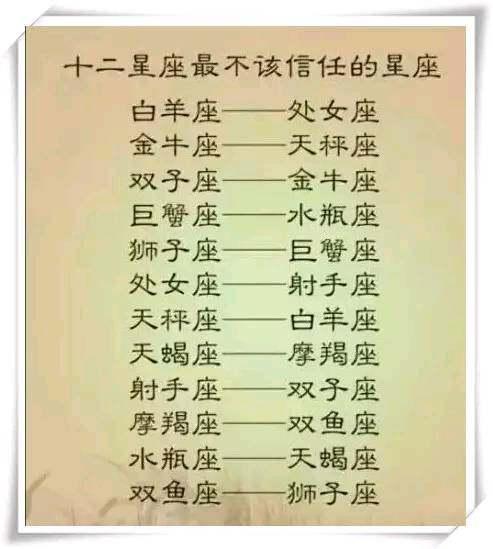 十二星座最不该信任的星座
白羊座——处女座
金牛座——天秤座
双子座——金牛座
巨蟹座——水瓶座
狮子座——巨蟹座
处女座——射手座
天秤座——白羊座
天蝎座——摩羯座
射手座——双子座
摩羯座——双鱼座
水瓶座——天蝎座
双鱼座——狮子座